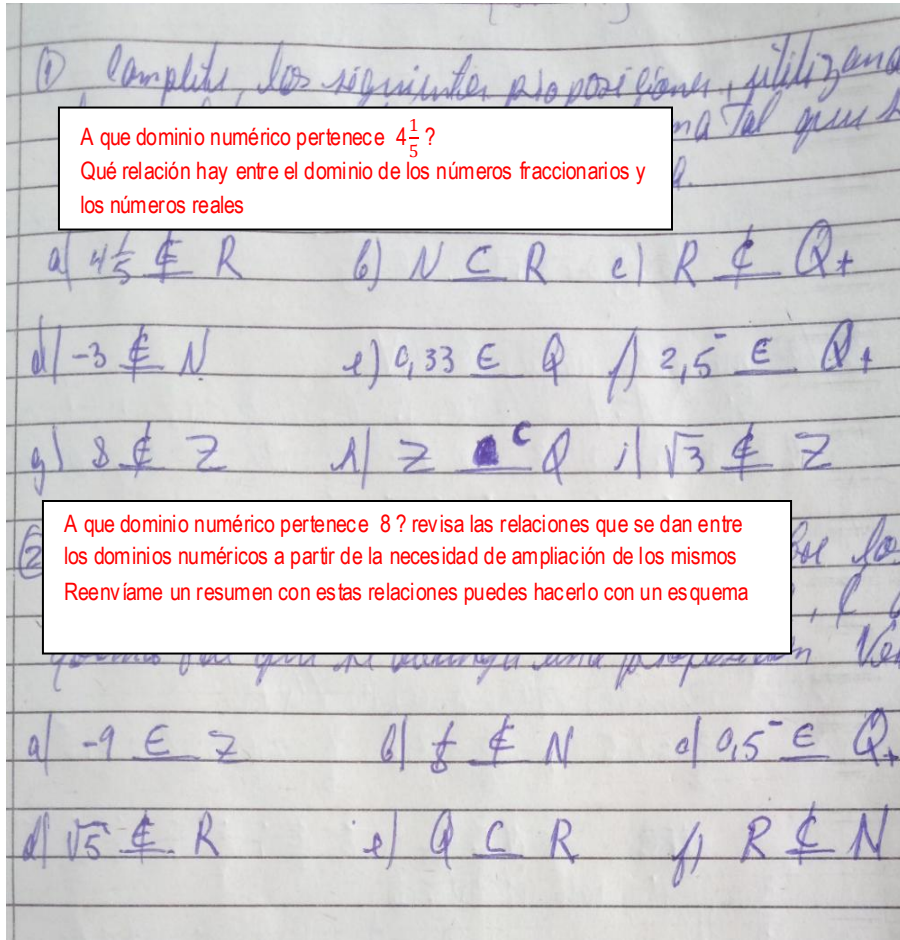 ① Complete, los siguientes proposiciones, utilizand
A que dominio numérico pertenece 4 1/5 ?
ma tal que
Qué relación hay entre el dominio de los números fraccionarios y
los números reales
a) 4 1/5 ∉ R b) N ⊂ R c) R ⊄ Q+
d) -3 ∉ N e) 0,33 ∈ Q f) 2,5̄ ∈ Q+
g) 8 ∉ Z h) Z ⊂ Q i) √3 ∉ Z
A que dominio numérico pertenece 8 ? revisa las relaciones que se dan entre
②
los dominios numéricos a partir de la necesidad de ampliación de los mismos
Reenvíame un resumen con estas relaciones puedes hacerlo con un esquema
proposición
a) -9 ∈ Z b) 1/8 ∉ N c) 0,5̄ ∈ Q+
d) √5 ∉ R e) Q ⊂ R f) R ⊄ N